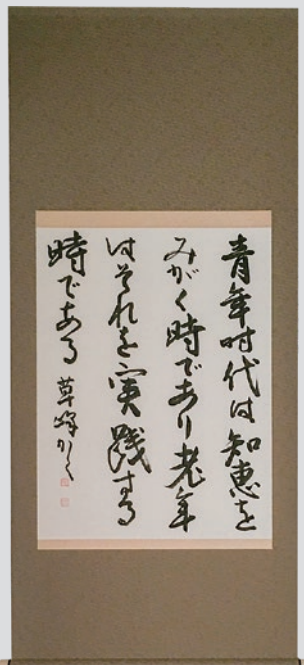 青年时代は知恵を
みがく時であり老年
はそれを実践する
時である 草峰かく